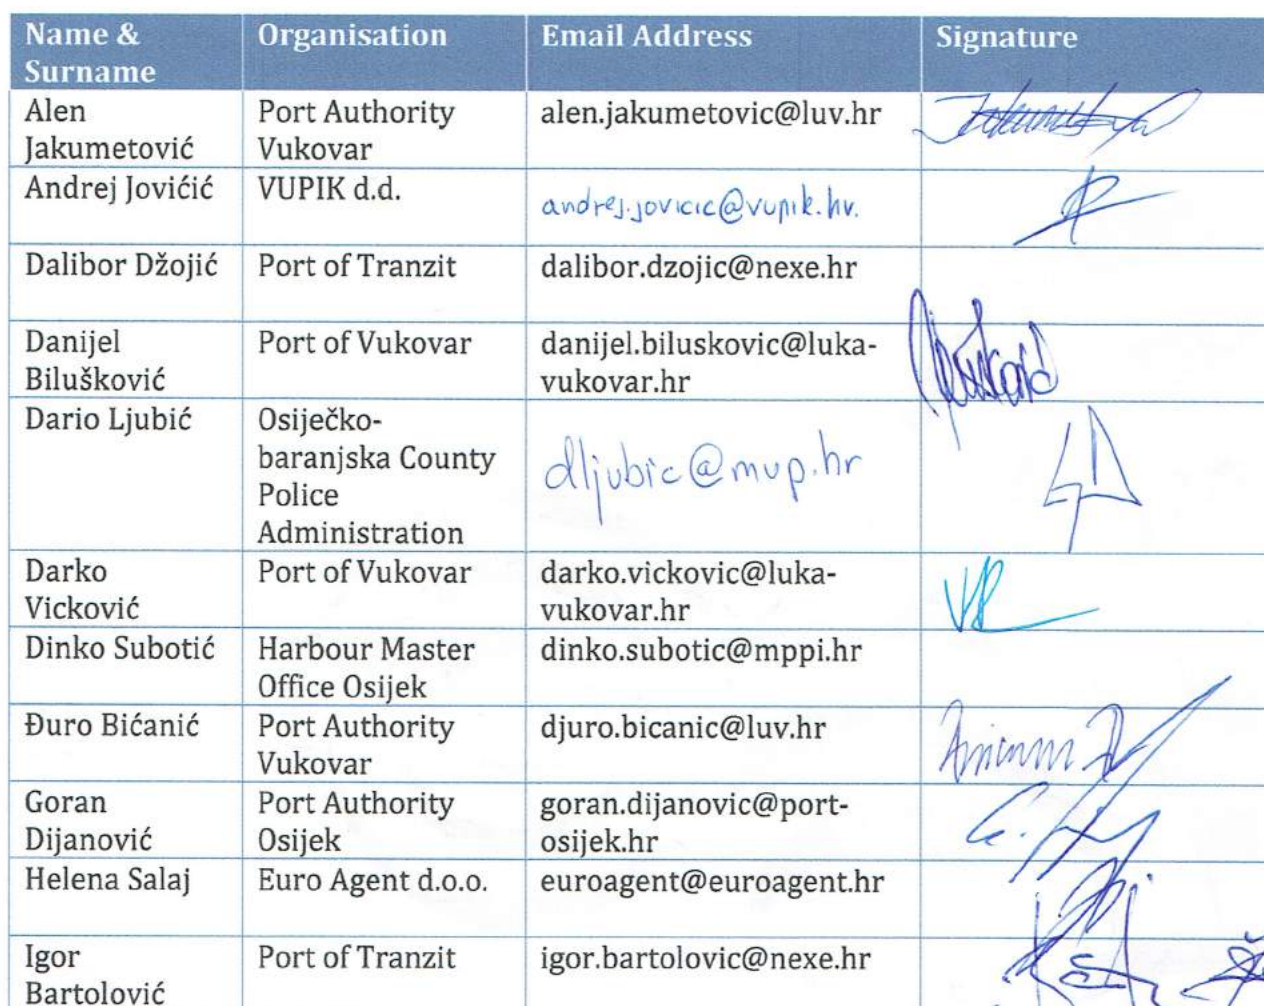 Name & Surname Organisation Email Address Signature
Alen Jakumetović Port Authority Vukovar alen.jakumetovic@luv.hr
Andrej Jovićić VUPIK d.d. andrej.jovicic@vupik.hr.
Dalibor Džojić Port of Tranzit dalibor.dzojic@nexe.hr
Danijel Bilušković Port of Vukovar danijel.biluskovic@luka-vukovar.hr
Dario Ljubić Osiječko-baranjska County Police Administration dljubic@mup.hr
Darko Vicković Port of Vukovar darko.vickovic@luka-vukovar.hr
Dinko Subotić Harbour Master Office Osijek dinko.subotic@mppi.hr
Đuro Bićanić Port Authority Vukovar djuro.bicanic@luv.hr
Goran Dijanović Port Authority Osijek goran.dijanovic@port-osijek.hr
Helena Salaj Euro Agent d.o.o. euroagent@euroagent.hr
Igor Bartolović Port of Tranzit igor.bartolovic@nexe.hr